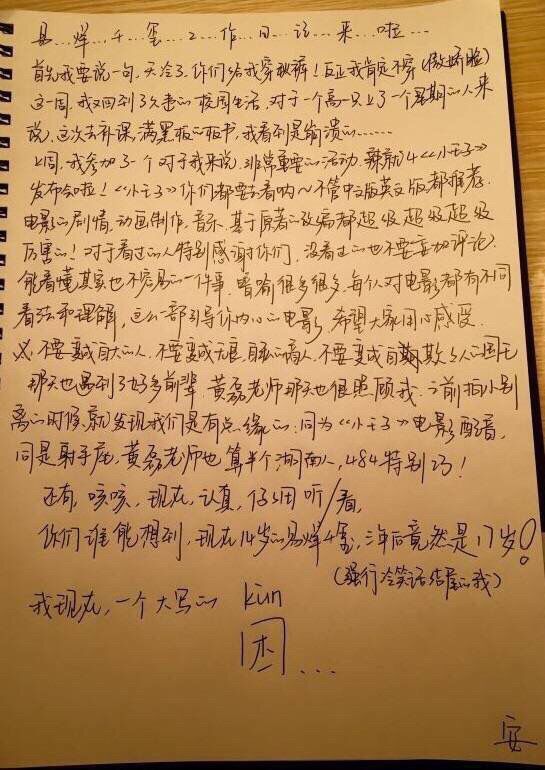 易…烊…千…玺…の…作…日…记…来…啦…
首先我要说一句,天冷了,你们给我穿秋裤!反正我肯定不穿(傲娇脸)
这一周,我又回到了久违的校园生活,对于一个高一只上了一个星期的人来
说,这次去补课,满黑板的板书,我看到是崩溃的……
上周,我参加了一个对于我来说,非常重要的活动,那就是《小王子》
发布会啦!《小王子》你们都要去看哟~不管中文版英文版都推荐.
电影的剧情,动画制作,音乐,基于原著的改编都超级超级超级
厉害的!对于看过的人特别感谢你们,没看过的也不要妄加评论,
能看懂其实也不容易的一件事,暗喻很多很多,每个人对电影都有不同
看法和理解,这么一部引导你内心的电影,希望大家用心感受.
不要变成自大的人,不要变成无趣的商人,不要变成自欺欺人的国王
那天也遇到了好多前辈,黄磊老师那天也很照顾我,之前拍小别
离的时候,就发现我们是有点缘的,同为《小王子》电影配音,
同是射手座,黄磊老师也算半个湖南人,484特别巧!
还有,咳咳,现在,认真,仔细听/看,
你们谁能想到,现在14岁的易烊千玺,三年后竟然是17岁!
(强行冷笑话结尾的我)
我现在,一个大写的 kùn
困…
安